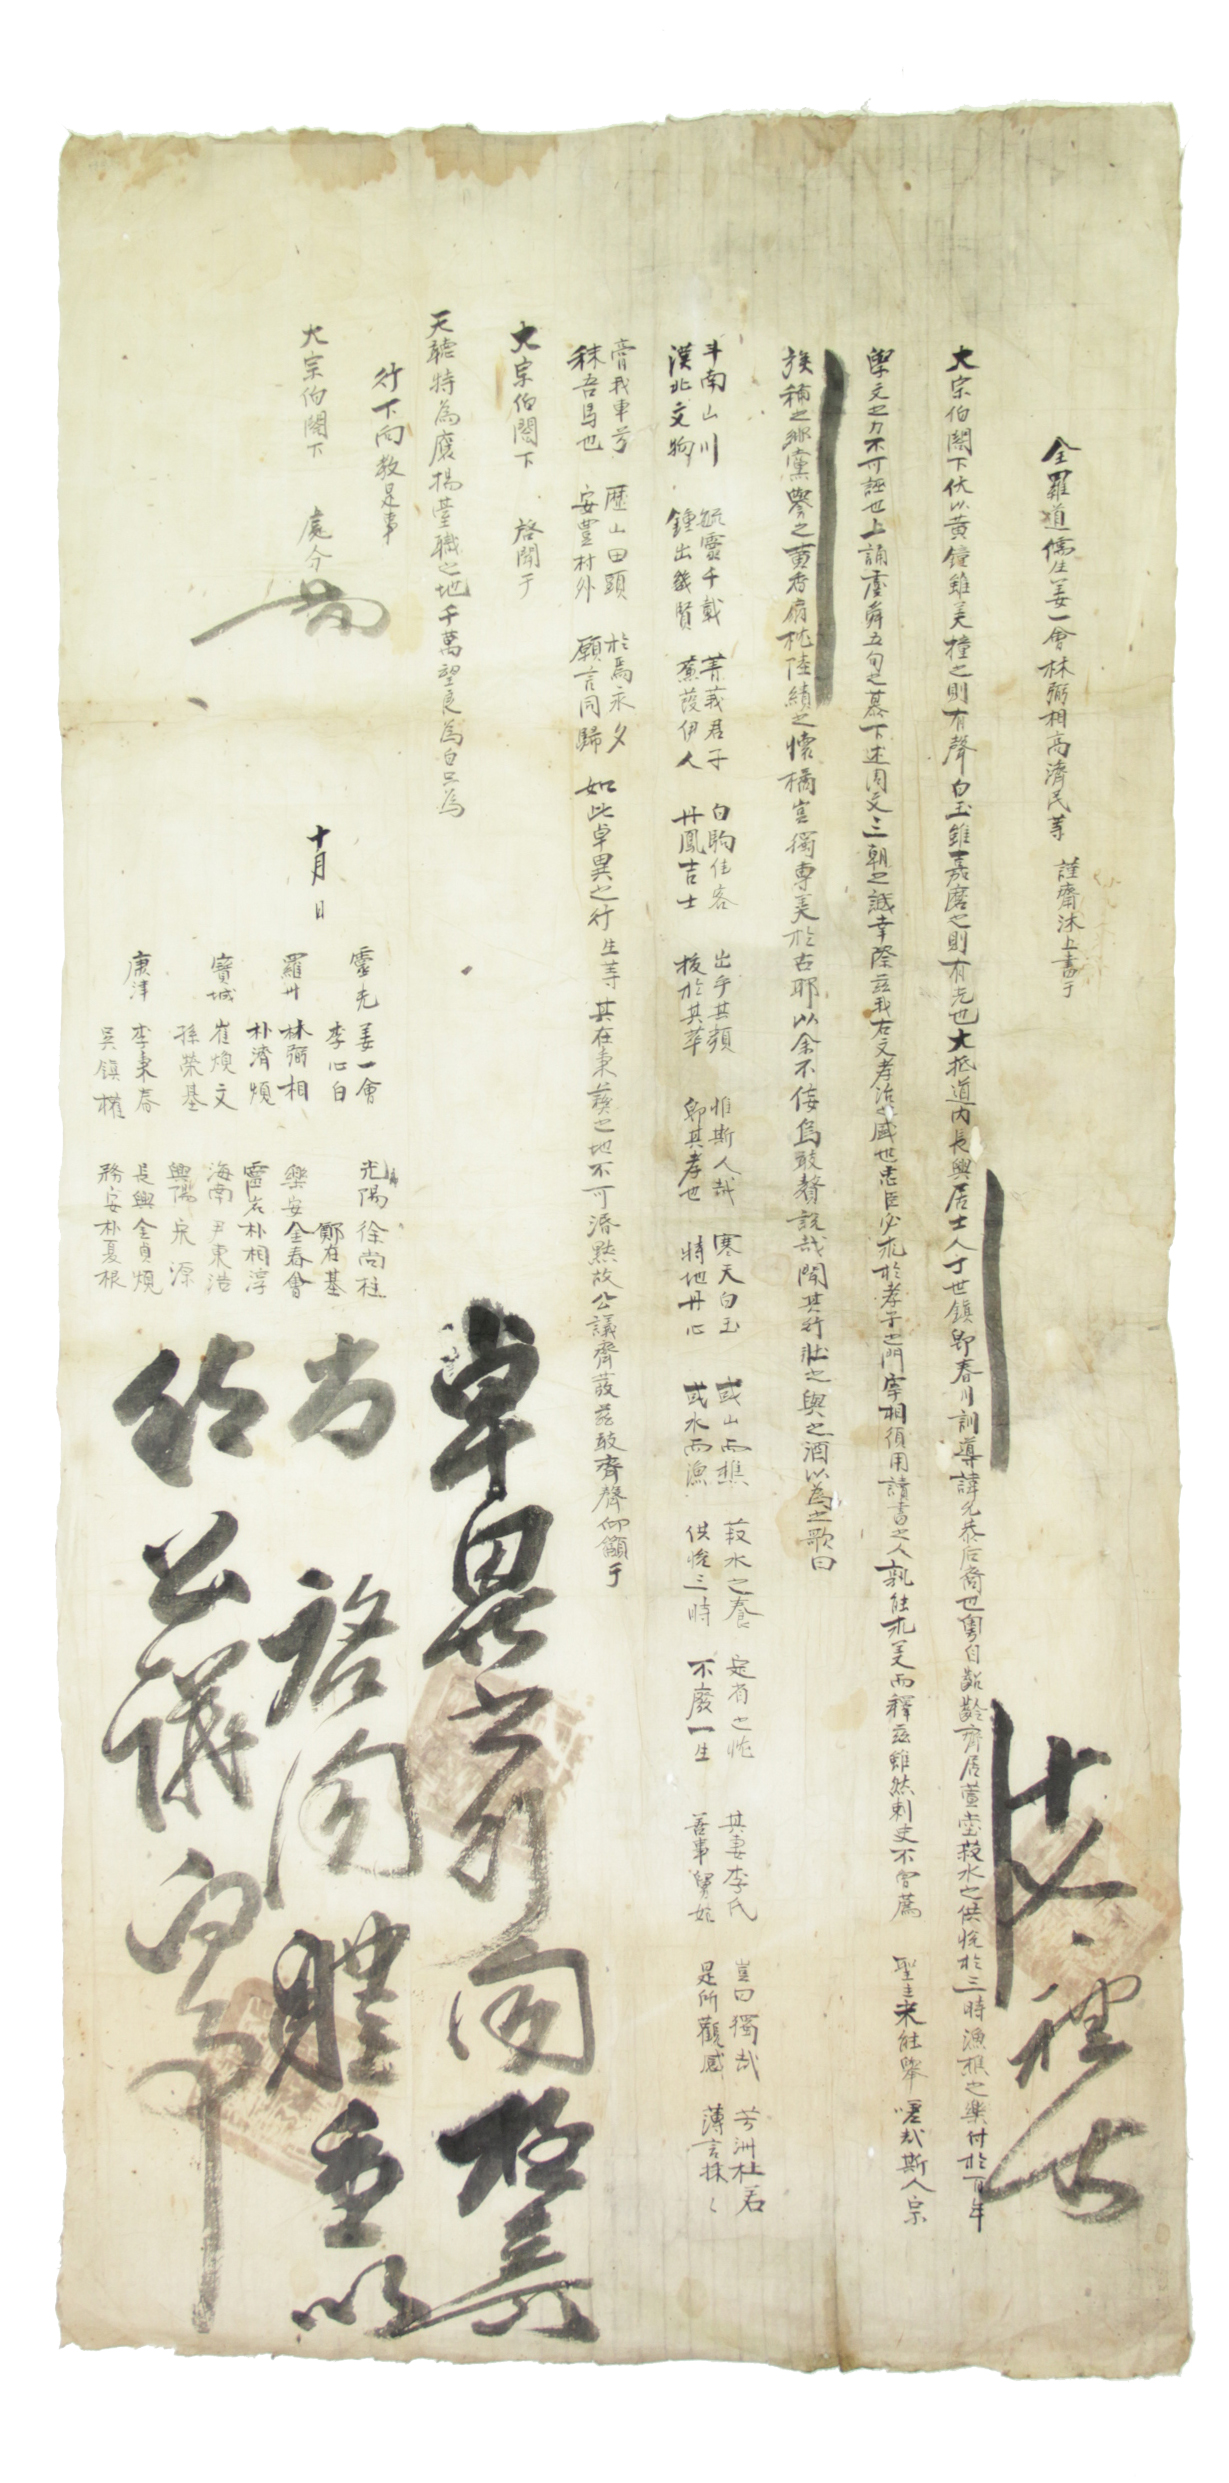 全羅道儒生姜一會林弼相高濟民等 謹齋沐上書于
大宗伯閤下伏以黃鐘雖美撞之則有聲白玉雖嘉磨之則有光也大抵道內長興居士人丁世鎭卽春川訓導諱允恭后裔也粤自齠齡齊居萱堂菽水之供悅於三時漁樵之樂付於百年
學文之力不可誣也上誦虞舜五旬之慕下述周文三朝之誠幸際玆我右文孝治之盛世忠臣必求於孝子之門宰相須用讀書之人孰能求美而釋玆雖然刺史不曾薦 聖主未能擧 嗟哉斯人宗
族稱之鄕黨譽之黃香扇枕陸績之懷橘豈獨專美於古耶以余不侫烏敢贅說哉聞其行狀之與之酒以爲之歌曰
斗南山川 毓靈千載 菁莪君子 白駒佳客 出乎其類 惟斯人哉 寒天白玉 或山而樵 菽水之養 定省之忱 其妻李氏 豈曰獨哉 芳洲杜若
漢北文物 鍾出幾賢 薰葭伊人 丹鳳吉士 拔於其萃 卽其孝也 特地丹心 或水而漁 供悅三時 不廢一生 善事舅姑 是所觀感 薄言採〻
膏我車兮 歷山田頭 於焉永夕
秣吾馬也 安豊村外 願言同歸 如此卓異之行生等其在秉彛之地不可泯默故公議齊發玆敢齊聲仰籲于
大宗伯閤下 啓聞于
天聽特爲褒揚臺職之地千萬望良爲白只爲
行下向敎是事
大宗伯閤下 處分
十月 日
靈光 姜一會 光陽 徐尙柱
李心白 鄭在基
羅州 林弼相 樂安 全春會
朴濟煩 靈岩 朴相淳
寶城 崔煥文 海南 尹東浩
孫榮基 興陽 宋源
康津 李秉春 長興 金貞煩
吳鎭權 務安 朴夏根
卓異之行向極嘉
尙 啓聞體重以
俟公議宜事
十六 禮曹